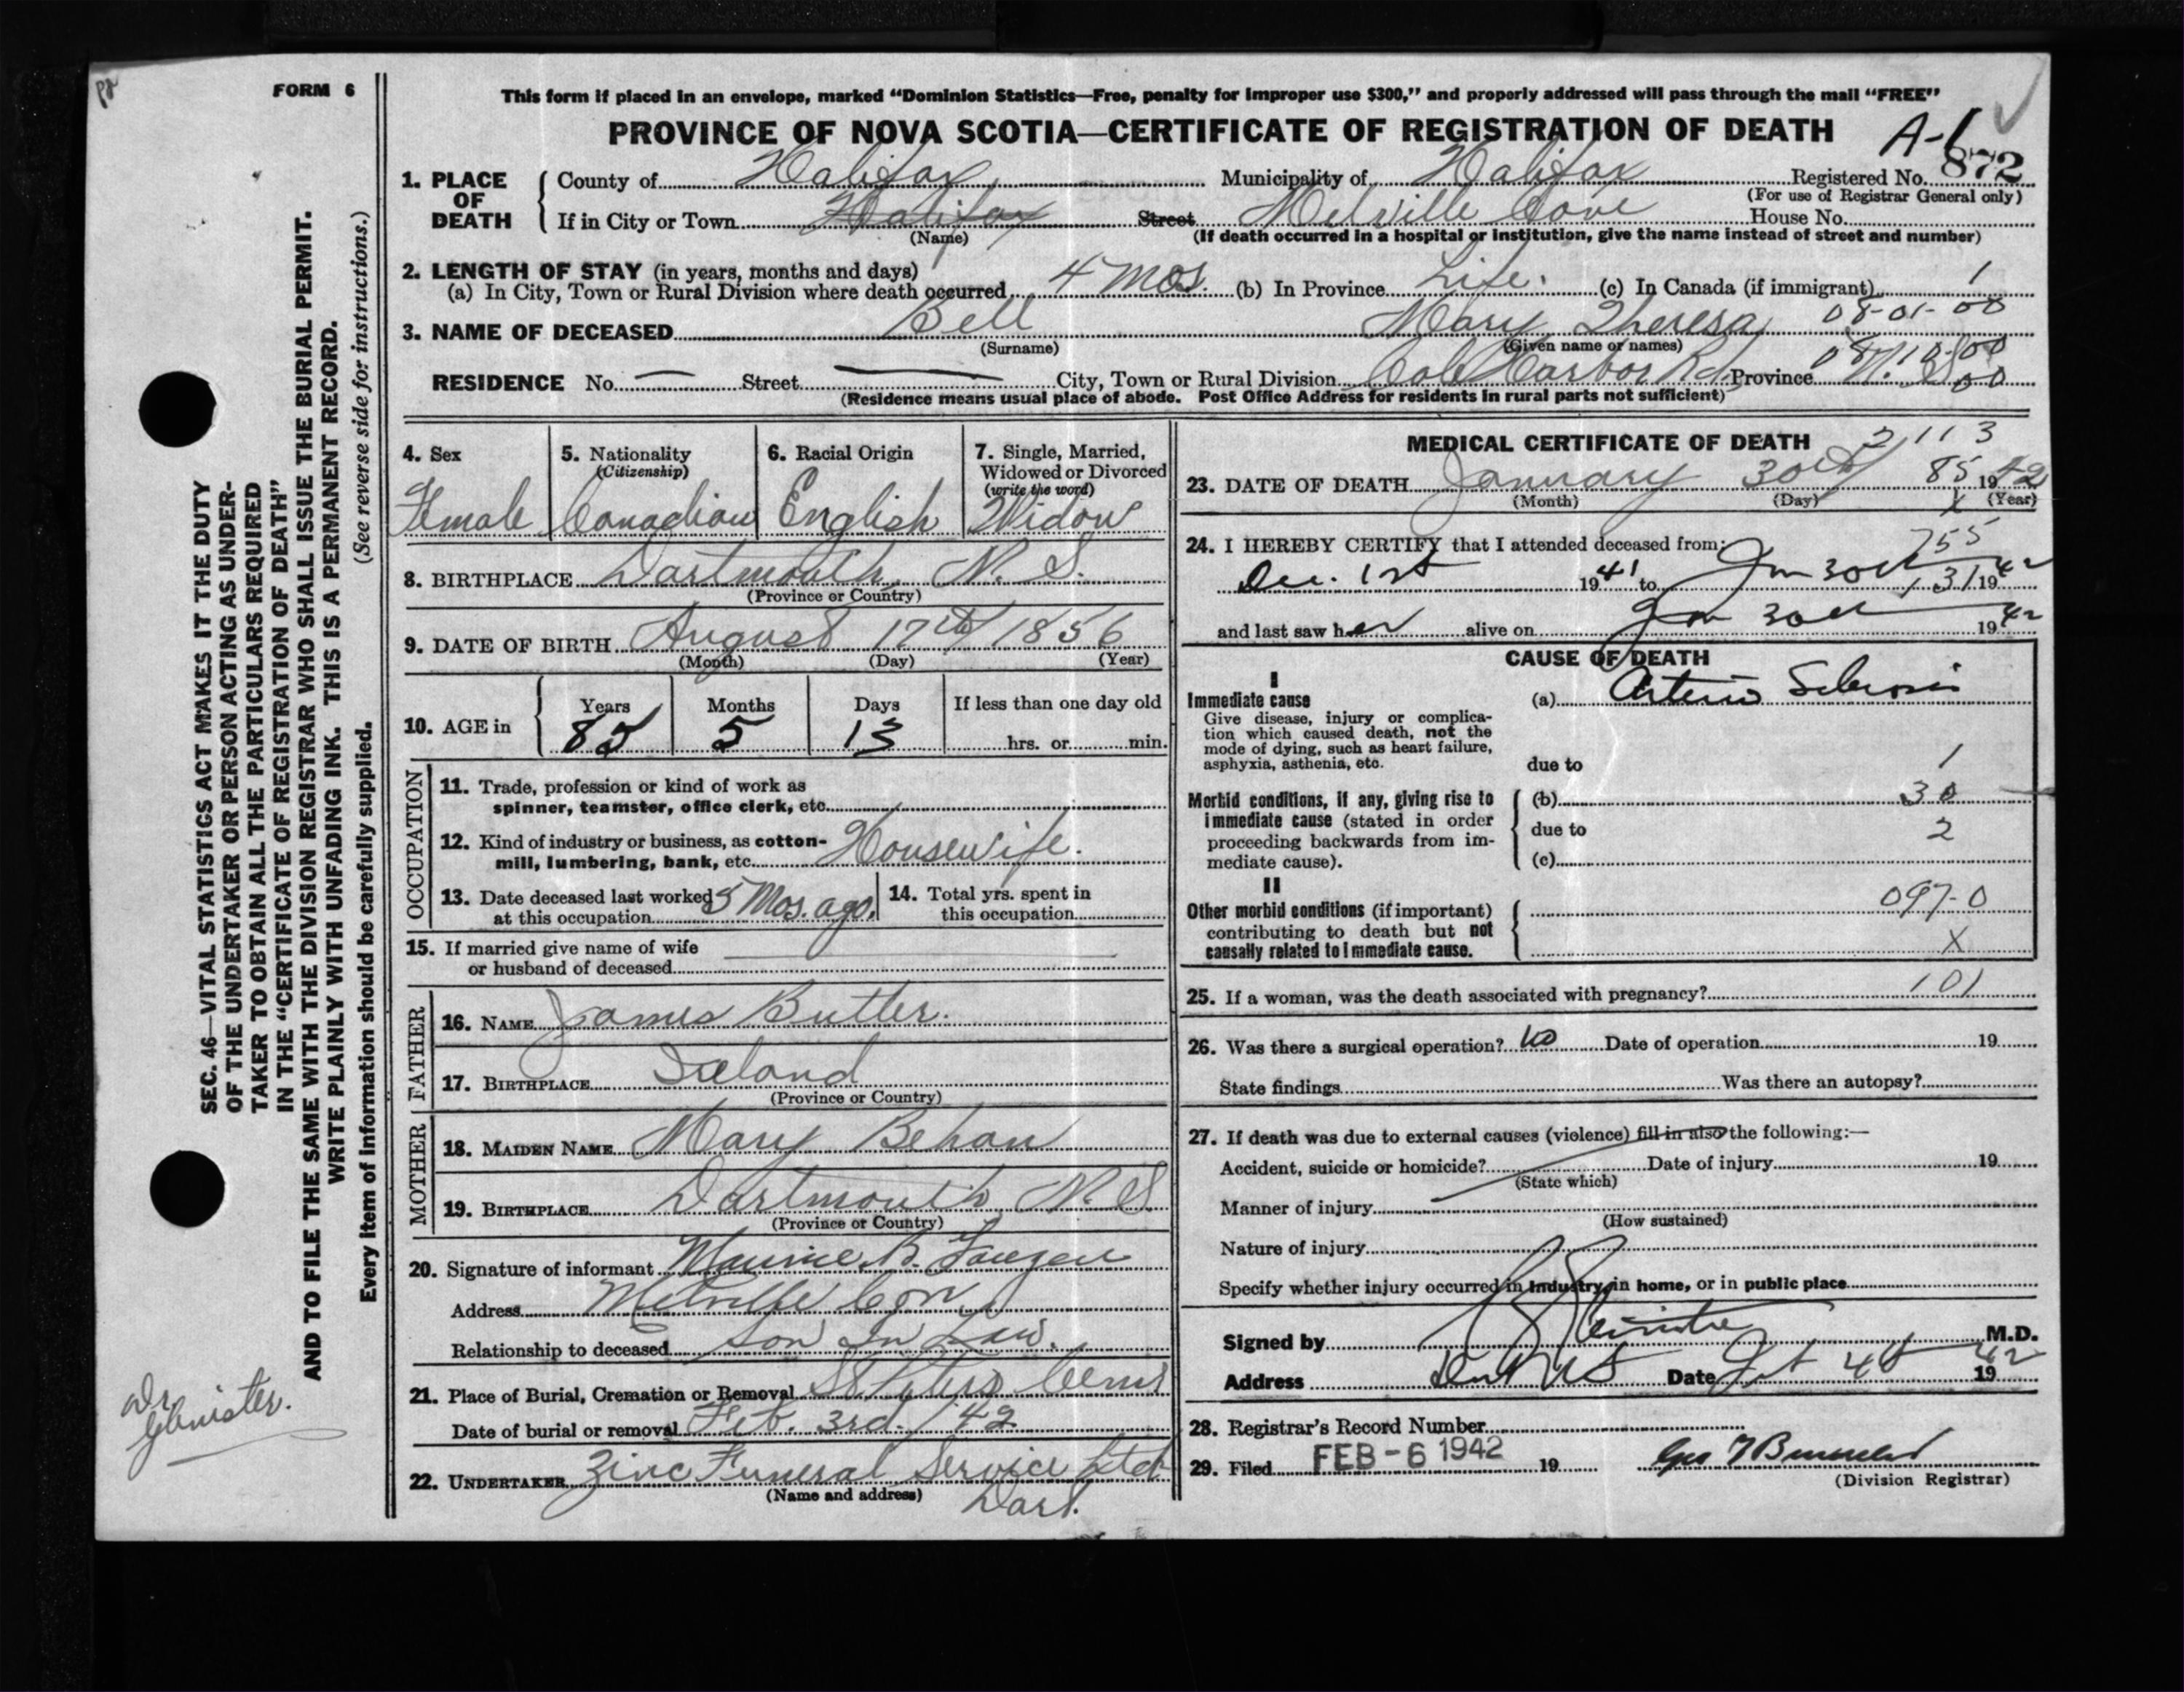 FORM 6
This form if placed in an envelope, marked "Dominion Statistics—Free, penalty for improper use $300," and properly addressed will pass through the mail "FREE"
PROVINCE OF NOVA SCOTIA—CERTIFICATE OF REGISTRATION OF DEATH
A-1
872
1. PLACE OF DEATH
County of Halifax Municipality of Halifax Registered No.
(For use of Registrar General only)
If in City or Town Halifax Street Melville Cove House No.
(Name) (If death occurred in a hospital or institution, give the name instead of street and number)
2. LENGTH OF STAY (in years, months and days)
(a) In City, Town or Rural Division where death occurred 4 Mos. (b) In Province Life. (c) In Canada (if immigrant) 1
3. NAME OF DECEASED Bell Mary Theresa 08-01-00
(Surname) (Given name or names)
RESIDENCE No. — Street — City, Town or Rural Division Cole Harbor Rd. Province N. S.
(Residence means usual place of abode. Post Office Address for residents in rural parts not sufficient)
4. Sex
Female
5. Nationality
(Citizenship)
Canadian
6. Racial Origin
English
7. Single, Married,
Widowed or Divorced
(write the word)
Widow
8. BIRTHPLACE Dartmouth, N. S.
(Province or Country)
9. DATE OF BIRTH August 17th 1856
(Month) (Day) (Year)
10. AGE in
Years Months Days If less than one day old
85 5 13 hrs. or min.
OCCUPATION
11. Trade, profession or kind of work as
spinner, teamster, office clerk, etc.
12. Kind of industry or business, as cotton-
mill, lumbering, bank, etc. Housewife.
13. Date deceased last worked
at this occupation 5 Mos. ago.
14. Total yrs. spent in
this occupation
15. If married give name of wife
or husband of deceased
FATHER
16. NAME James Butler.
17. BIRTHPLACE Ireland
(Province or Country)
MOTHER
18. MAIDEN NAME Mary Behan
19. BIRTHPLACE Dartmouth, N. S.
(Province or Country)
20. Signature of informant Maurice B.
Address Melville Cove
Relationship to deceased Son In Law.
21. Place of Burial, Cremation or Removal St Peters
Date of burial or removal Feb. 3rd. /42
22. UNDERTAKER Zinc Funeral Service Ltd
(Name and address) Dart.
MEDICAL CERTIFICATE OF DEATH
2113
23. DATE OF DEATH January 30th 85 1942
(Month) (Day) X (Year)
755
24. I HEREBY CERTIFY that I attended deceased from:
Dec. 1st 1941 to Jan 30th 131 1942
and last saw her alive on Jan 30th 1942
CAUSE OF DEATH
I
Immediate cause
Give disease, injury or complica-
tion which caused death, not the
mode of dying, such as heart failure,
asphyxia, asthenia, etc.
(a) Arterio Sclerosis
due to 1
Morbid conditions, if any, giving rise to
immediate cause (stated in order
proceeding backwards from im-
mediate cause).
(b) 30
due to 2
(c)
II
Other morbid conditions (if important)
contributing to death but not
causally related to immediate cause.
097-0
X
25. If a woman, was the death associated with pregnancy? 101
26. Was there a surgical operation? No Date of operation 19
State findings Was there an autopsy?
27. If death was due to external causes (violence) fill in also the following:—
Accident, suicide or homicide? Date of injury 19
(State which)
Manner of injury
(How sustained)
Nature of injury
Specify whether injury occurred in industry, in home, or in public place
Signed by Glenister M.D.
Address Dart N S Date Feb 4th 1942
28. Registrar's Record Number
29. Filed FEB-6 1942 19
(Division Registrar)
SEC. 46—VITAL STATISTICS ACT MAKES IT THE DUTY
OF THE UNDERTAKER OR PERSON ACTING AS UNDER-
TAKER TO OBTAIN ALL THE PARTICULARS REQUIRED
IN THE "CERTIFICATE OF REGISTRATION OF DEATH"
AND TO FILE THE SAME WITH THE DIVISION REGISTRAR WHO SHALL ISSUE THE BURIAL PERMIT.
WRITE PLAINLY WITH UNFADING INK. THIS IS A PERMANENT RECORD.
Every item of information should be carefully supplied. (See reverse side for instructions.)
Dr.
Glenister.